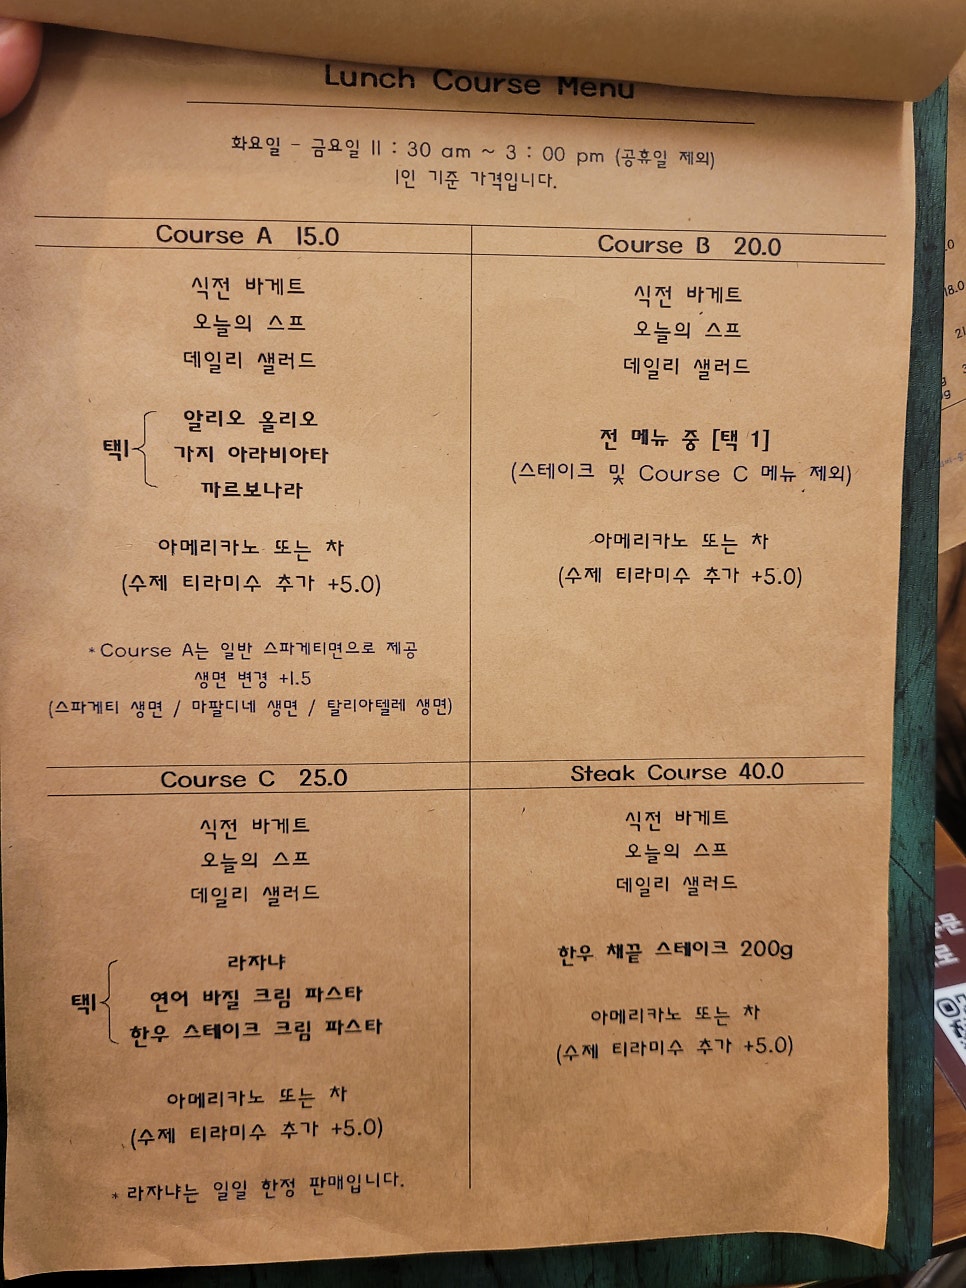 Lunch Course Menu
화요일 - 금요일 11 : 30 am ~ 3 : 00 pm (공휴일 제외)
1인 기준 가격입니다.
Course A 15.0
식전 바게트
오늘의 스프
데일리 샐러드
알리오 올리오
택1
가지 아라비아타
까르보나라
아메리카노 또는 차
(수제 티라미수 추가 +5.0)
*Course A는 일반 스파게티면으로 제공
생면 변경 +1.5
(스파게티 생면 / 마팔디네 생면 / 탈리아텔레 생면)
Course B 20.0
식전 바게트
오늘의 스프
데일리 샐러드
전 메뉴 중 [택 1]
(스테이크 및 Course C 메뉴 제외)
아메리카노 또는 차
(수제 티라미수 추가 +5.0)
Course C 25.0
식전 바게트
오늘의 스프
데일리 샐러드
라자냐
택1
연어 바질 크림 파스타
한우 스테이크 크림 파스타
아메리카노 또는 차
(수제 티라미수 추가 +5.0)
*라자냐는 일일 한정 판매입니다.
Steak Course 40.0
식전 바게트
오늘의 스프
데일리 샐러드
한우 채끝 스테이크 200g
아메리카노 또는 차
(수제 티라미수 추가 +5.0)
18.0